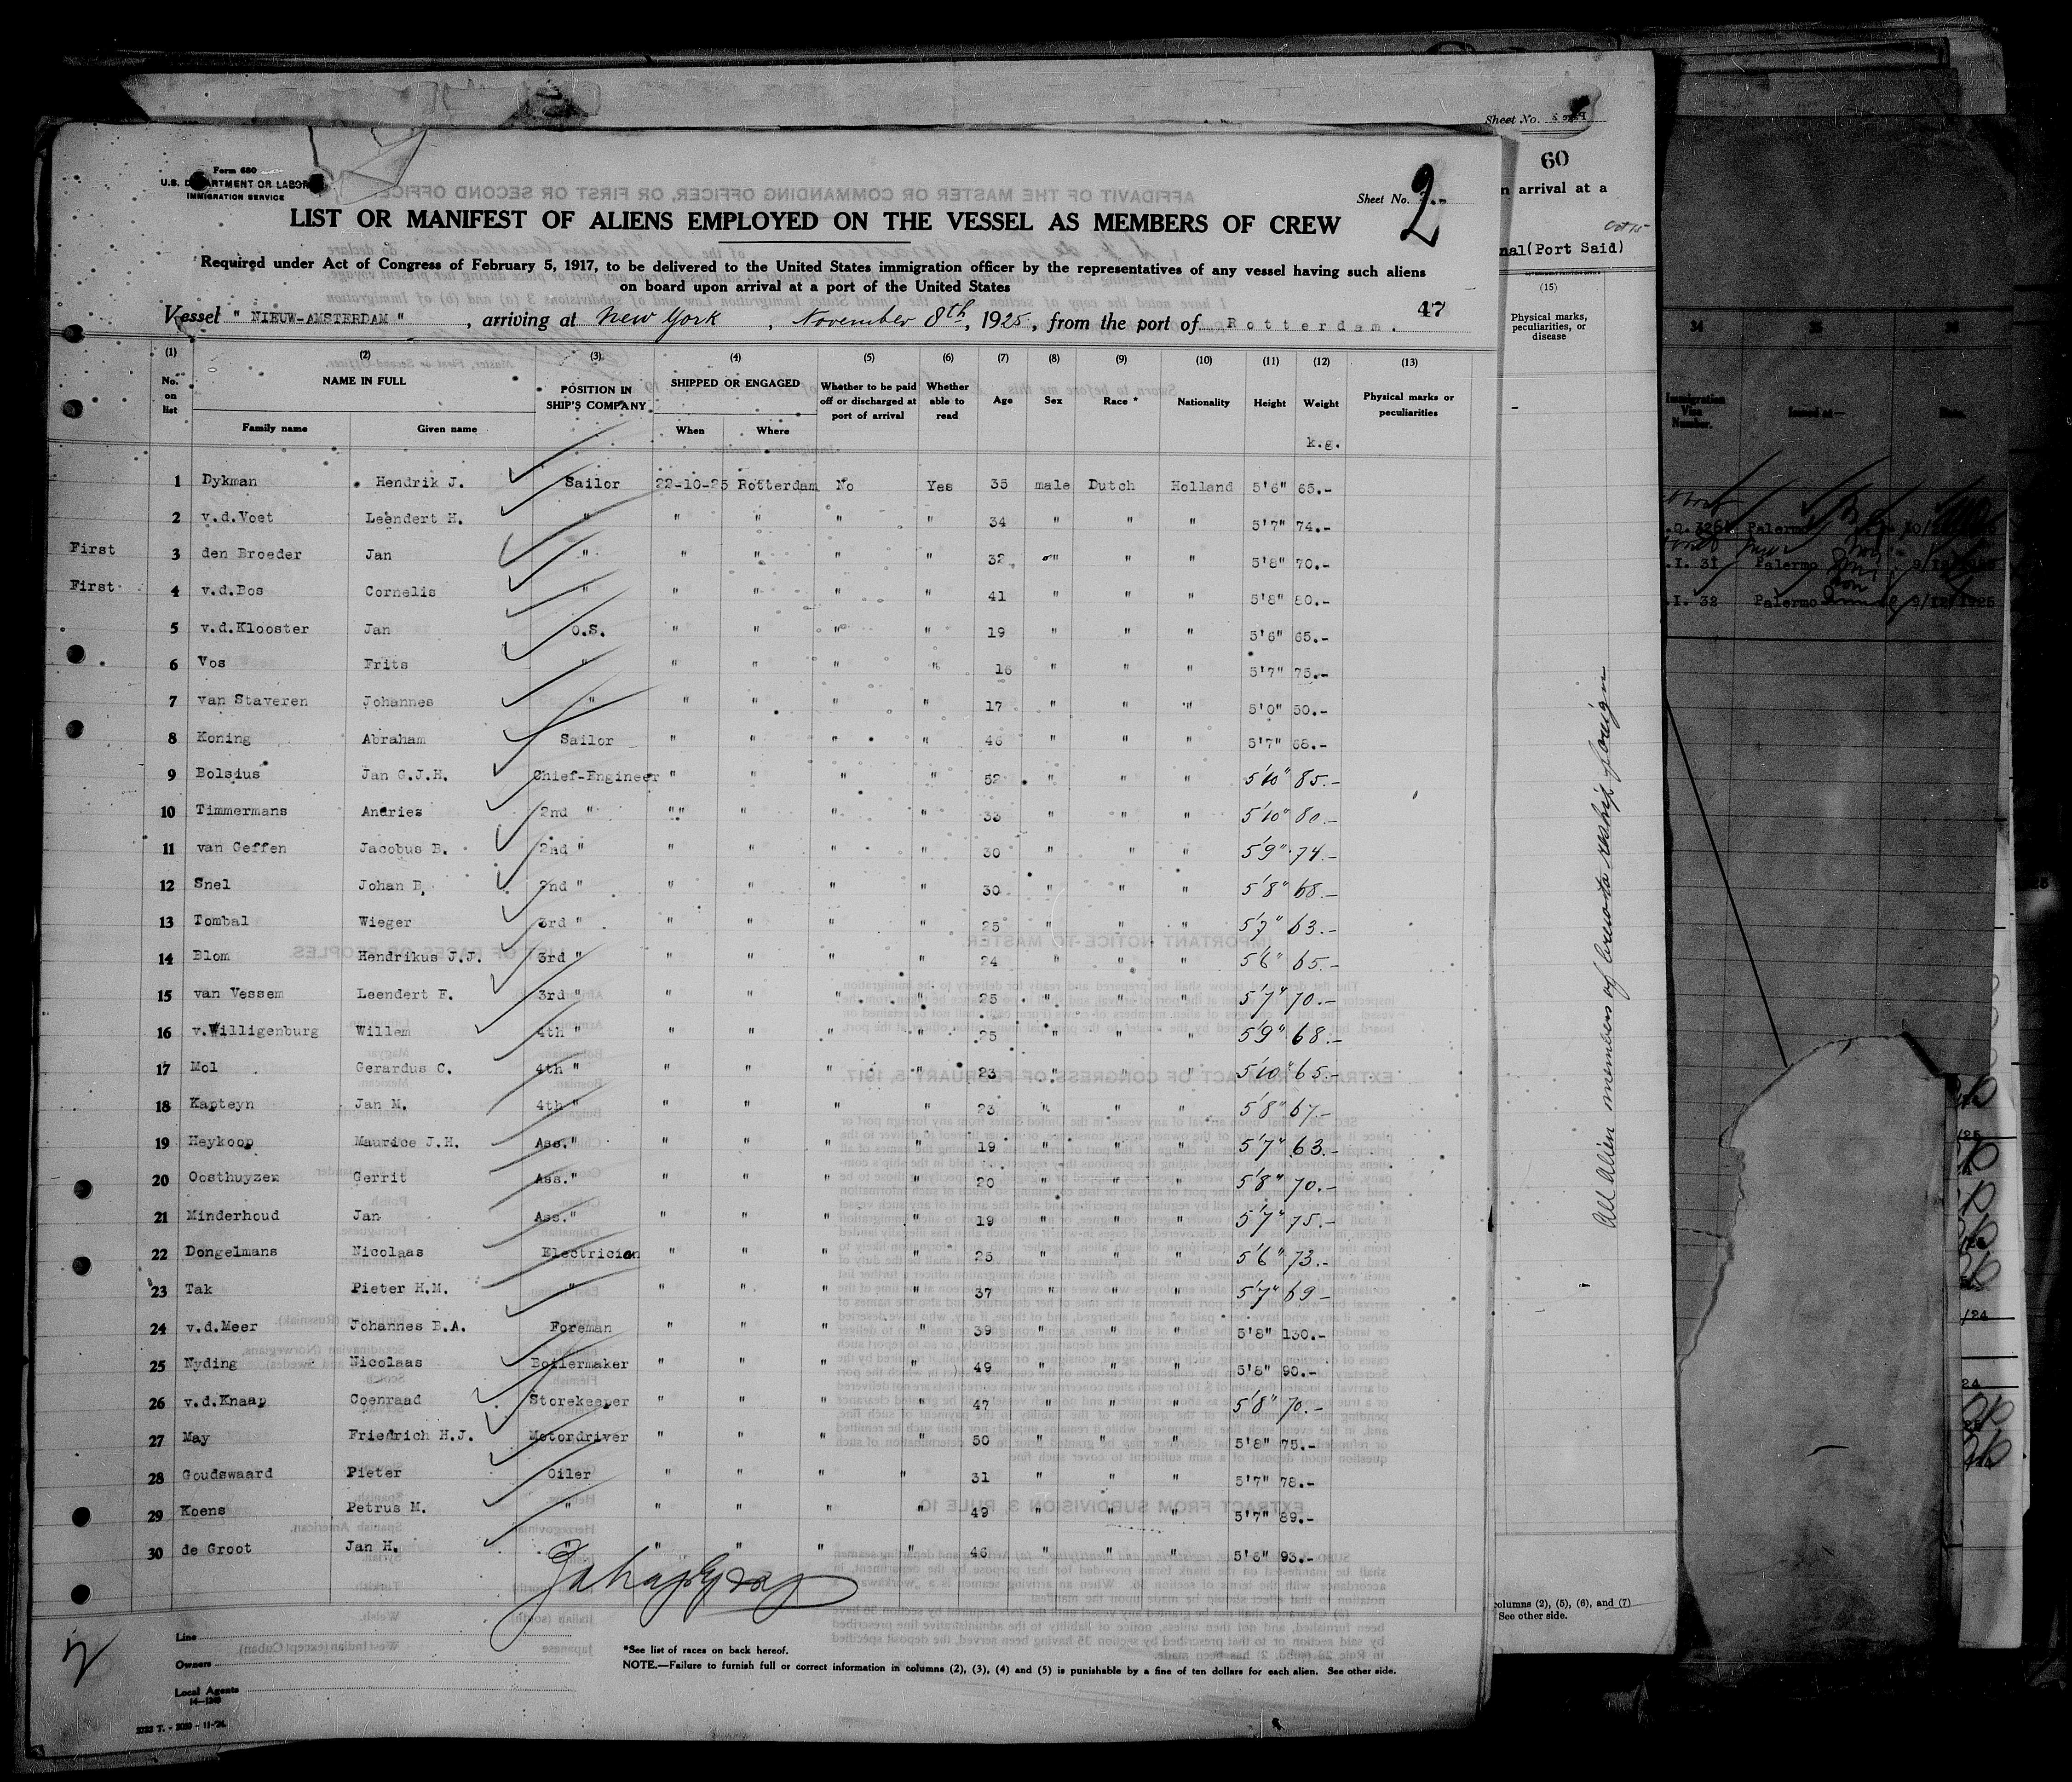 Form 680
U.S. DEPARTMENT OF LABOR
IMMIGRATION SERVICE
Sheet No. 2
LIST OR MANIFEST OF ALIENS EMPLOYED ON THE VESSEL AS MEMBERS OF CREW
Required under Act of Congress of February 5, 1917, to be delivered to the United States immigration officer by the representatives of any vessel having such aliens
on board upon arrival at a port of the United States
47
Vessel " NIEUW-AMSTERDAM ", arriving at New York, November 8th, 1925, from the port of Rotterdam.
(1) (2) (3) (4) (5) (6) (7) (8) (9) (10) (11) (12) (13)
No. on list NAME IN FULL Family name Given name POSITION IN SHIP'S COMPANY SHIPPED OR ENGAGED When Where Whether to be paid off or discharged at port of arrival Whether able to read Age Sex Race * Nationality Height Weight Physical marks or peculiarities
k.g.
1 Dykman Hendrik J. Sailor 22-10-25 Rotterdam No Yes 35 male Dutch Holland 5'6" 65.-
2 v.d.Voet Leendert H. " " " " " 34 " " " 5'7" 74.-
First 3 den Broeder Jan " " " " " 32 " " " 5'8" 70.-
First 4 v.d.Bos Cornelis " " " " " 41 " " " 5'8" 80.-
5 v.d.Klooster Jan O.S. " " " " 19 " " " 5'6" 65.-
6 Vos Frits " " " " " 16 " " " 5'7" 75.-
7 van Staveren Johannes " " " " " 17 " " " 5'0" 50.-
8 Koning Abraham Sailor " " " " 46 " " " 5'7" 68.-
9 Bolsius Jan G.J.H. Chief-Engineer " " " " 52 " " " 5'10" 85.-
10 Timmermans Andries 2nd " "" " " " 33 " " " 5'10" 80.-
11 van Geffen Jacobus B. 2nd " " " " " 30 " " " 5'9" 74.-
12 Snel Johan B. 2nd " " " " " 30 " " " 5'8" 68.-
13 Tombal Wieger 3rd " " " " " 25 " " " 5'7" 63.-
14 Blom Hendrikus J.J. 3rd " " " " " 24 " " " 5'6" 65.-
15 van Vessem Leendert F. 3rd " " " " " 25 " " " 5'7" 70.-
16 v.Willigenburg Willem 4th " " " " " 25 " " " 5'9" 68.-
17 Mol Gerardus C. 4th " " " " " 23 " " " 5'10" 65.-
18 Kapteyn Jan M. 4th " " " " " 23 " " " 5'8" 67.-
19 Heykoop Maurice J.H. Ass." " " " " 19 " " " 5'7" 63.-
20 Oosthuyzen Gerrit Ass." " " " " 20 " " " 5'8" 70.-
21 Minderhoud Jan Ass." " " " " 19 " " " 5'7" 75.-
22 Dongelmans Nicolaas Electrician " " " " 25 " " " 5'6" 73.-
23 Tak Pieter H.M. " " " " " 37 " " " 5'7" 69-
24 v.d.Meer Johannes B.A. Foreman " " " " 39 " " " 5'8" 130.-
25 Nyding Nicolaas Boilermaker " " " " 49 " " " 5'8" 90.-
26 v.d.Knaap Coenraad Storekeeper " " " " 47 " " " 5'8" 70.-
27 May Friedrich H.J. Motordriver " " " " 50 " " " 5'8" 75.-
28 Goudswaard Pieter Oiler " " " " 31 " " " 5'7" 78.-
29 Koens Petrus M. " " " " " 49 " " " 5'7" 89.-
30 de Groot Jan H. " " " " " 46 " " " 5'8" 93.-
Line
Owners
Local Agents
14-1240
*See list of races on back hereof.
NOTE.—Failure to furnish full or correct information in columns (2), (3), (4) and (5) is punishable by a fine of ten dollars for each alien. See other side.
Sheet No.
60
n arrival at a
nal(Port Said)
(15)
Physical marks, peculiarities, or disease
All Alien members of crew to reship foreign
columns (2), (5), (6), and (7)
See other side.
34 35 36
Immigration Visa Number. Issued at— Date.
Palermo
.I. 31 Palermo
.I. 32 Palermo 9/12/1925